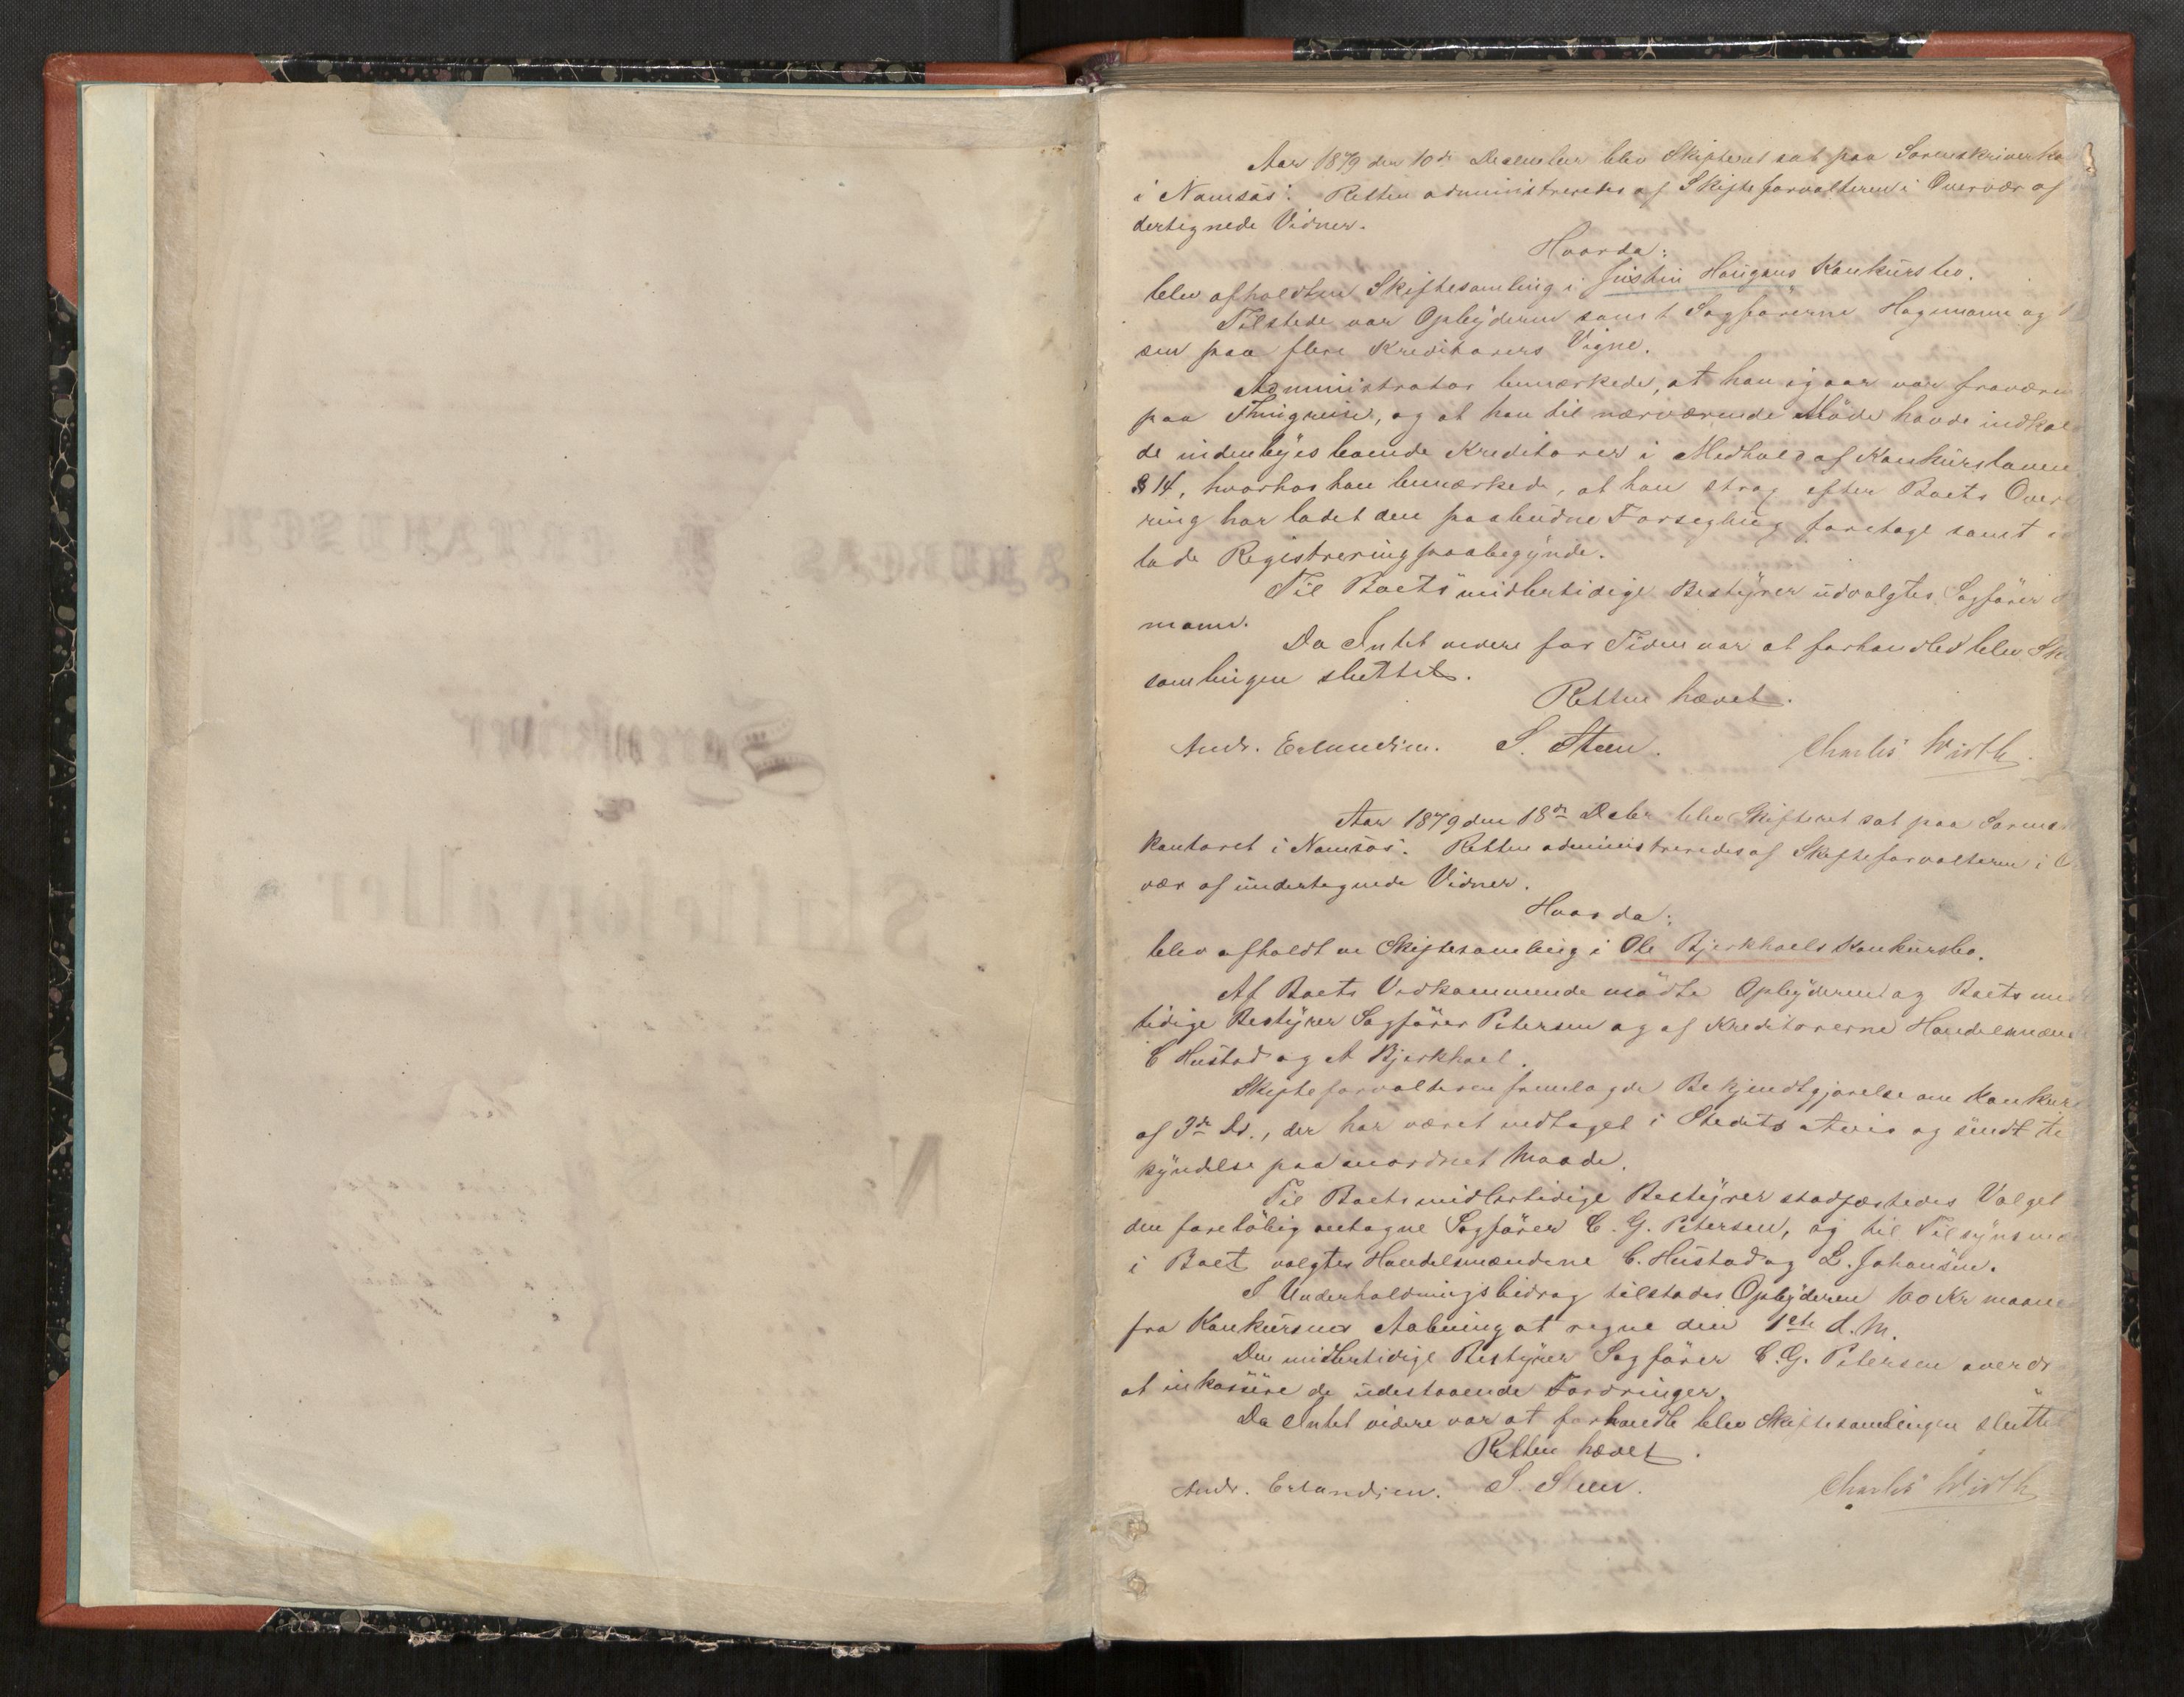 Aar 1879 den 10de December blev Skifteret sat paa Sorenskriverko
i Namsos. Retten administreredes af Skifteforvalteren i Overvær af
dertegnede Vidner.
Hvorda:
blev afholdt en Skiftesamling i Justin Haugans Konkursbo.
Tilstede var Opbyderen samt Sagførerne Hagemann og
sen paa flere Kreditorers Vegne.
Administrator bemærkede, at han igaar var fraværen
paa Thingreise, og at han til nærværende Møde havde indkal
de indenbyes boende Kreditorer i Medhold af Konkursloven
§ 14, hvorhos han bemærkede, at han strax efter Boets Over
ring har ladet den paabudne Forsegling foretage samt
lade Registrering paabegynde.
Til Boets midlertidige Bestyrer udvalgtes Sagfører
mann.
Da Intet videre for Tiden var at forhandle blev Sk
samlingen sluttet.
Retten hævet.
Andr. Erlandsen. S. Steen. Charles Wirth.
Aar 1879 den 18de Decbr blev Skifteret sat paa Sorens
kontoret i Namsos. Retten administreredes af Skifteforvalteren i O
vær af undertegnede Vidner.
Hvorda:
blev afholdt en Skiftesamling i Ole Bjerkhoels Konkursbo.
Af Boets Vedkommende mødte Opbyderen og Boets mid
tidige Bestyrer Sagfører Petersen og af Kreditorerne Handelsmæn
C Hustad og A Bjerkhoel.
Skifteforvalteren fremlagde Bekjendtgjørelse om Konkurs
af 3de ds., der har været vedtaget i Stedets Avis og sendt ti
kyndelse paa anordnet Maade.
Til Boets midlertidige Bestyrer stadfæstedes Valget
den foreløbig antagne Sagfører C. G. Petersen, og til Tilsynsmæ
i Boet valgtes Handelsmændene C. Hustad og L. Johansen.
I Underholdningsbidrag tilstodes Opbyderen 100 Kr maan
fra Konkursens Aabning at regne den 1ste d. M.
Den midlertidige Bestyrer Sagfører C. G. Petersen overdr
at inkassere de udestaaende Fordringer.
Da Intet videre var at forhandle blev Skiftesamlingen sluttet
Retten hævet.
Andr. Erlandsen. S. Steen. Charles Wirth